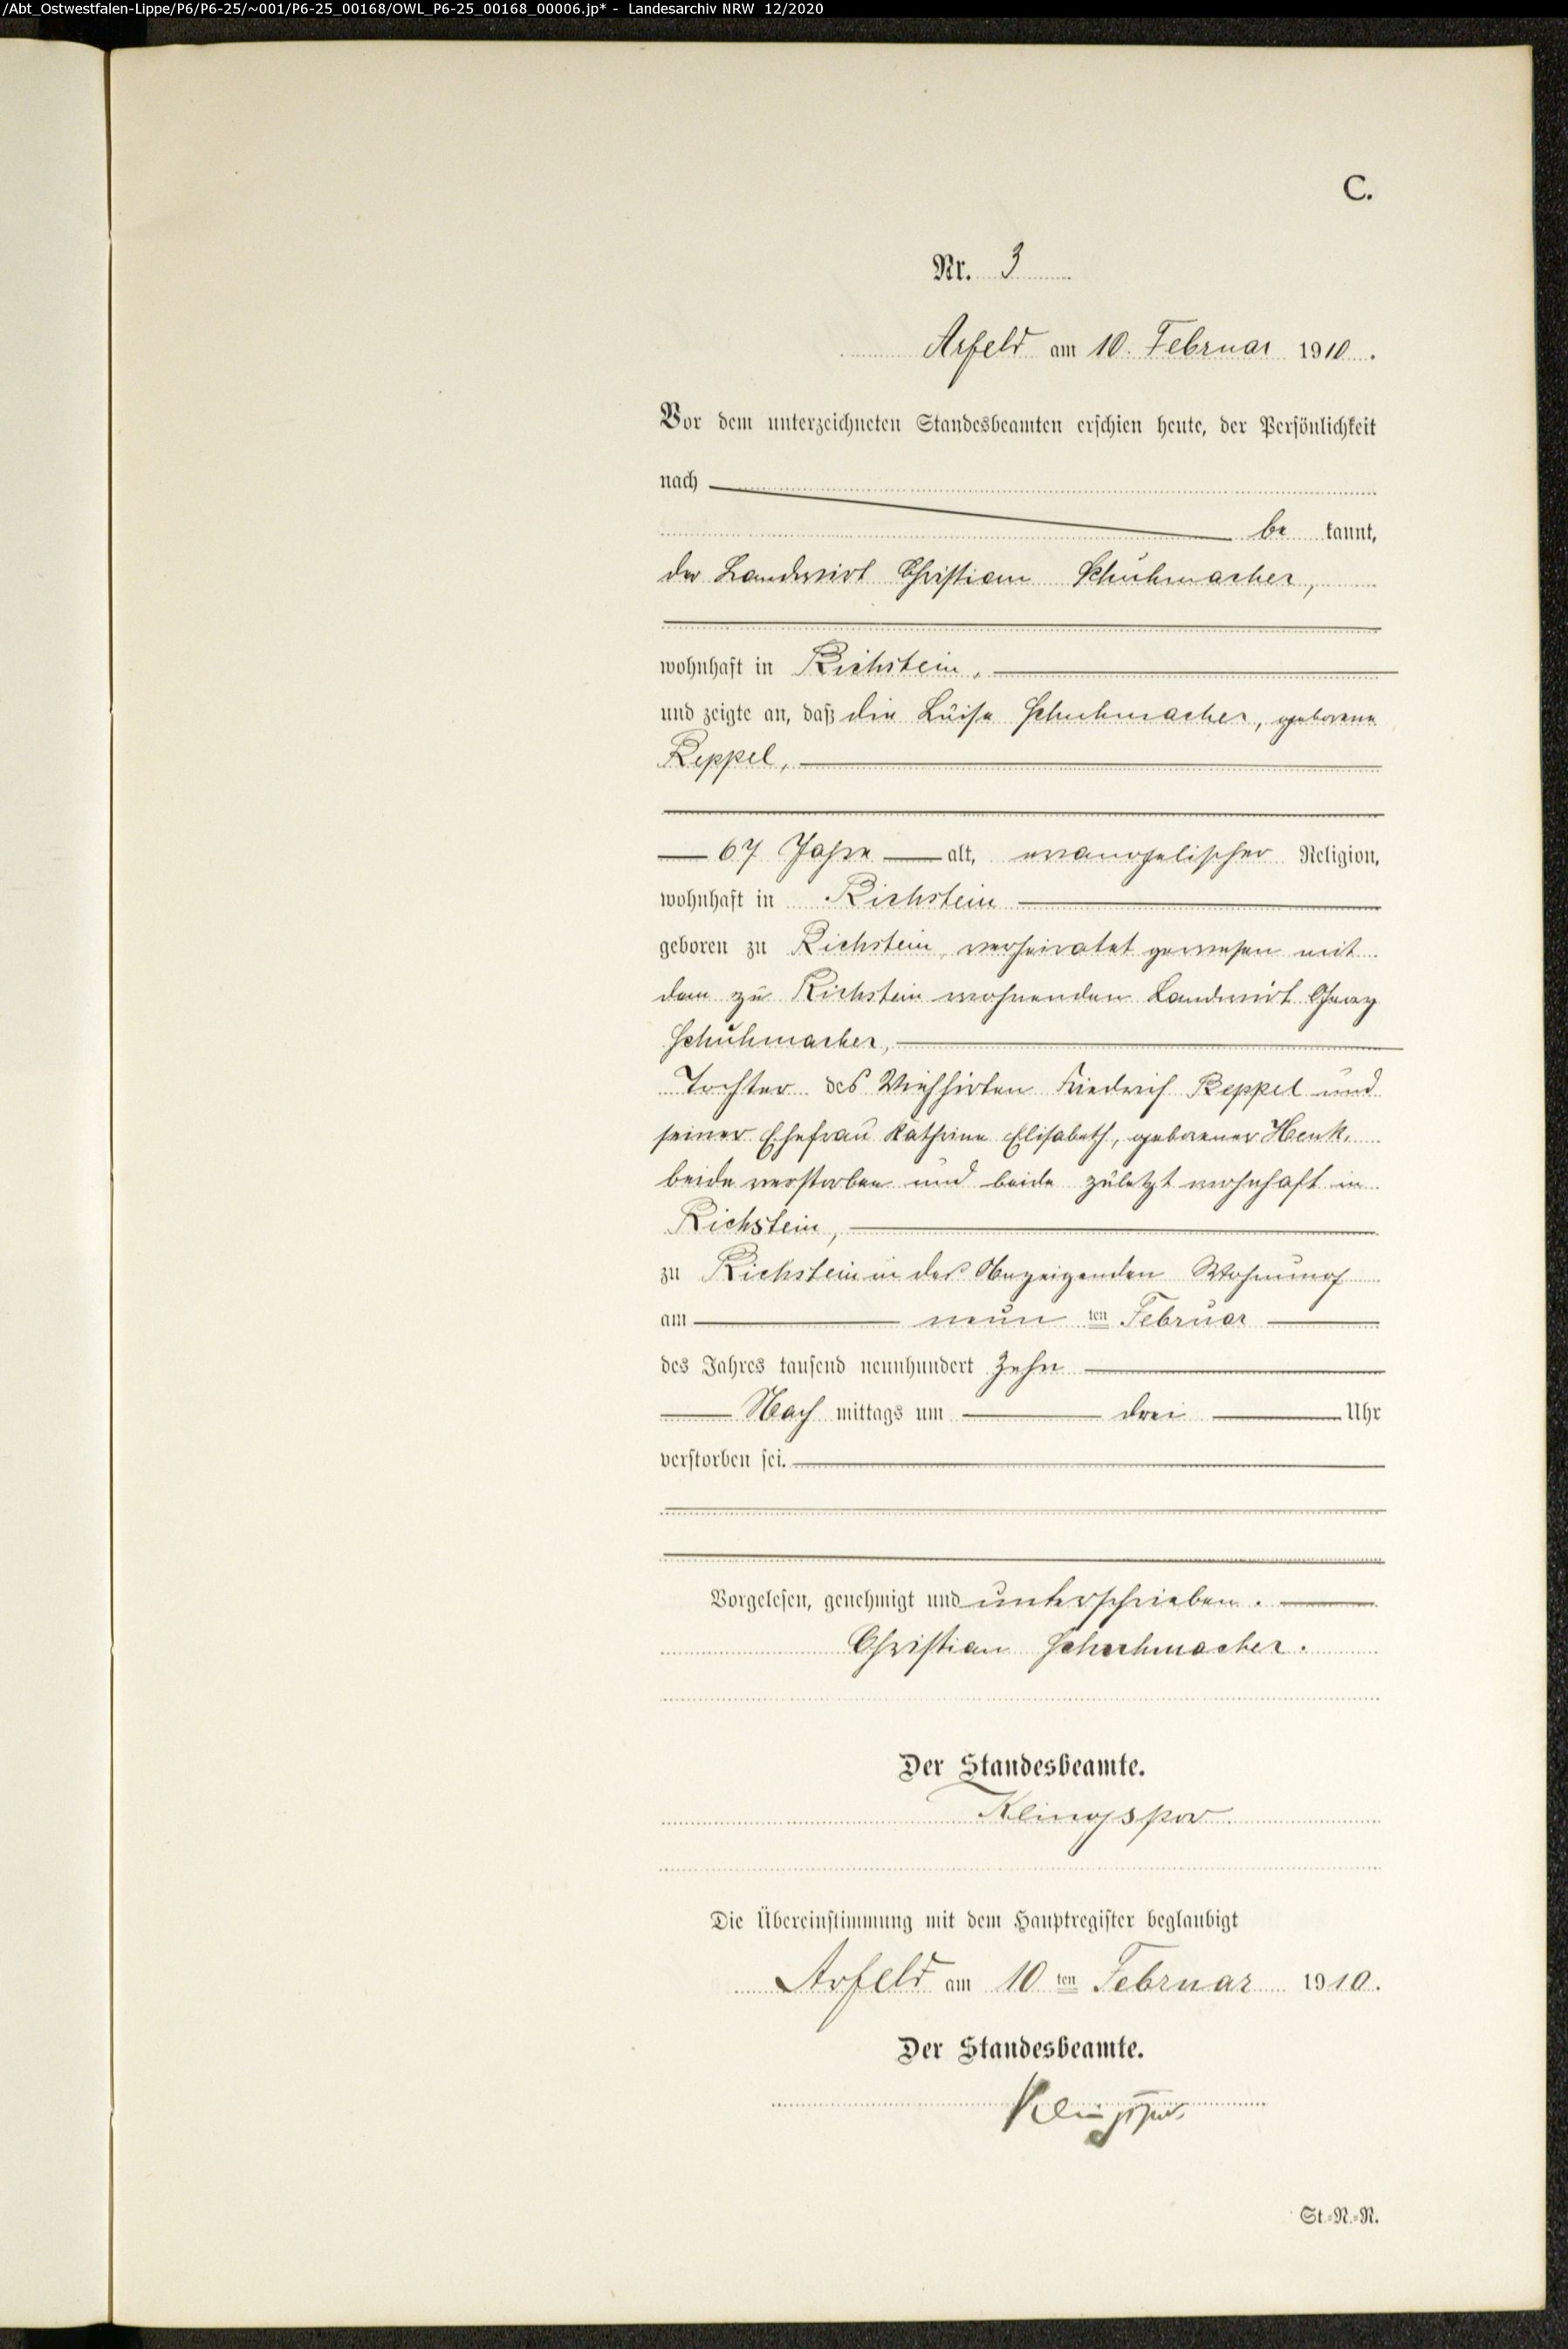 /Abt_Ostwestfalen-Lippe/P6/P6-25/~001/P6-25_00168/OWL_P6-25_00168_00006.jp* - Landesarchiv NRW 12/2020
C.
Nr. 3
Arfeld am 10. Februar 1910.
Vor dem unterzeichneten Standesbeamten erschien heute, der Persönlichkeit
nach
be kannt,
der Landwirt Christian Schuhmacher,
wohnhaft in Richstein,
und zeigte an, daß die Luise Schuhmacher, geborene
Reppel,
67 Jahre alt, evangelischer Religion,
wohnhaft in Richstein
geboren zu Richstein, verheiratet gewesen mit
dem zu Richstein wohnenden Landwirt Georg
Schuhmacher,
Tochter des Viehhirten Friedrich Reppel und
seiner Ehefrau Kathrine Elisabeth, geborener Henk,
beide verstorben und beide zuletzt wohnhaft in
Richstein,
zu Richstein in des Anzeigenden Wohnung
am neun ten Februar
des Jahres tausend neunhundert zehn
Nach mittags um drei Uhr
verstorben sei.
Vorgelesen, genehmigt und unterschrieben.
Christian Schuhmacher.
Der Standesbeamte.
Klingspor
Die Übereinstimmung mit dem Hauptregister beglaubigt
Arfeld am 10 ten Februar 1910.
Der Standesbeamte.
Klingspor
St.-N.-R.